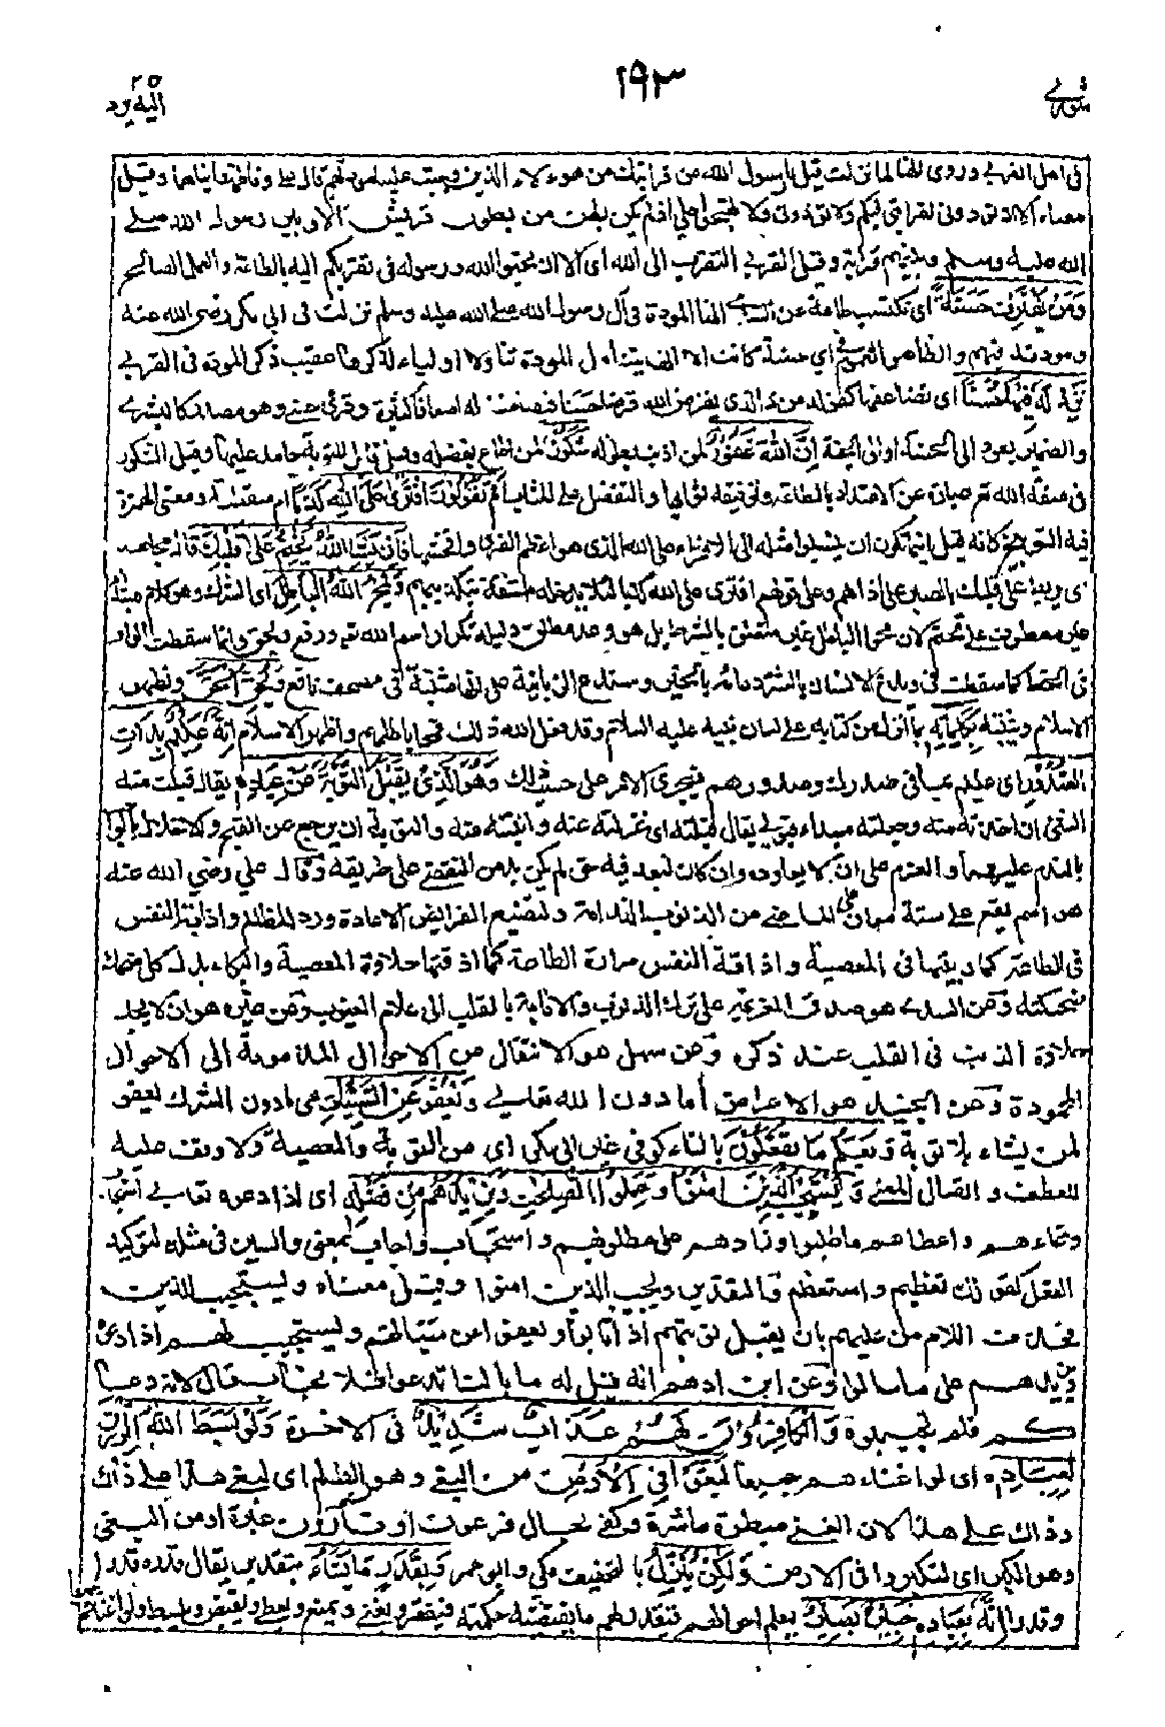 شورى
٢٩٣
اليه يرد ٢٥
فى اهل القربى وروى انها لما نزلت قيل يا رسول الله من قرابتك من هؤلاء الذين وجبت علينا مودتهم قال على وفاطمة وابناهما وقيل
معناه الا ان تودونى لقرابتى فيكم ولا تؤذونى ولا تهيجوا على اذ لم يكن بطن من بطون قريش الا وبين رسول الله صلى
الله عليه وسلم وبينهم قرابة وقيل القربى التقرب الى الله اى الا ان تحبوا الله ورسوله فى تقربكم اليه بالطاعة والعمل الصالح
وَمَن يَقْتَرِفْ حَسَنَةً اى يكتسب طاعة عن السدى انها المودة فى آل رسول الله صلى الله عليه وسلم نزلت فى ابى بكر رضى الله عنه
ومودته فيهم والظاهر العموم فى اى حسنة كانت الا انها تتناول المودة تناولا اوليا لذكرها عقيب ذكر المودة فى القربى
نَزِدْ لَهُ فِيهَا حُسْنًا اى نضاعفها كقوله من ذا الذى يقرض الله قرضا حسنا فيضاعفه له اضعافا كثيرة وقرئ حسنى وهو مصدر كالبشرى
والضمير يعود الى الحسنة او الى الجنة إِنَّ اللهَ غَفُورٌ لمن اذنب بطوله شَكُورٌ لمن اطاع بفضله وقيل قابل للتوبة حامل عليها وقيل الشكور
فى صفة الله تعم عبارة عن الاعتداد بالطاعة وتوفية ثوابها والتفضل على المثاب أَمْ يَقُولُونَ افْتَرَى عَلَى اللهِ كَذِبًا ام منقطعة ومعنى الهمزة
فيه التوبيخ كانه قيل ايتمالكون ان ينسبوا مثله الى الافتراء على الله الذى هو اعظم الفرى وافحشها فَإِن يَشَإِ اللهُ يَخْتِمْ عَلَى قَلْبِكَ قال مجاهد
اى يربط على قلبك بالصبر على اذاهم وعلى قولهم افترى على الله كذبا لئلا يدخله مشقة بتكذيبهم وَيَمْحُ اللهُ الْبَاطِلَ اى الشرك وهو كلام مبتدأ
غير معطوف على يختم لان محو الباطل غير متعلق بالشرط بل هو وعد مطلق دليله تكرار اسم الله تعم ورفع ويحق وانما سقطت الواو
فى الخط كما سقطت فى ويدع الانسان بالشر دعاءه بالخير وسندع الزبانية على انها مثبتة فى مصحف نافع وَيُحِقُّ الْحَقَّ ويظهر
الاسلام ويثبته بِكَلِمَاتِهِ بما انزل من كتابه على لسان نبيه عليه السلام وقد فعل الله ذلك فمحا باطلهم واظهر الاسلام إِنَّهُ عَلِيمٌ بِذَاتِ
الصُّدُورِ اى عليم بما فى صدرك وصدورهم فيجرى الامر على حسب ذلك وَهُوَ الَّذِى يَقْبَلُ التَّوْبَةَ عَنْ عِبَادِهِ يقال قبلت منه
الشئ اذا اخذته منه وجعلته مبدأ قبولى يقال قبلته اى عزلته عنه وابنته منه والتوبة ان يرجع عن القبيح والاخلال بالواجب
بالندم عليهما والعزم على ان لا يعاود وان كان لعبد فيه حق لم يكن بد من التفصى على طريقه وقال على رضى الله عنه
هو اسم يقع على ستة معان على الماضى من الذنوب الندامة ولتضييع الفرائض الاعادة ورد المظالم واذابة النفس
فى الطاعة كما ربيتها فى المعصية واذاقة النفس مرارة الطاعة كما اذقتها حلاوة المعصية والبكاء بدل كل ضحك
ضحكته وعن السدى هو صدق العزيمة على ترك الذنوب والانابة بالقلب الى علام الغيوب وعن غيره هو ان لا يجد
حلاوة الذنب فى القلب عند ذكره وعن سهل هو الانتقال من الاحوال المذمومة الى الاحوال
المحمودة وعن الجنيد هو الاعراض أما دون الله تعالى وَيَعْفُو عَنِ السَّيِّئَاتِ هى مادون الشرك يعفو
لمن يشاء بلا توبة وَيَعْلَمُ مَا تَفْعَلُونَ بالتاء كوفى غير ابى بكر اى من التوبة والمعصية ولا وقف عليه
للعطف واتصال المعنى وَيَسْتَجِيبُ الَّذِينَ آمَنُوا وَعَمِلُوا الصَّالِحَاتِ وَيَزِيدُهُم مِّن فَضْلِهِ اى اذا دعوه تعالى استجاب
دعاءهم واعطاهم ما طلبوا وزادهم على مطلوبهم واستجاب واجاب بمعنى والسين فى مثله لتوكيد
الفعل كقولك تعظم واستعظم والتقدير ويجيب الذين امنوا وقيل معناه ويستجيب للذين
فحذفت اللام من عليهم بان يقبل توبتهم اذا تابوا ويعفو عن سيئاتهم ويستجيب لهم اذا دعوه
ويزيدهم على ما سالوا وعن ابن ادهم انه قيل له ما بالنا ندعوا فلا نجاب قال لانه دعا
كم فلم تجيبوه وَالْكَافِرُونَ لَهُمْ عَذَابٌ شَدِيدٌ فى الاخرة وَلَوْ بَسَطَ اللهُ الرِّزْقَ
لِعِبَادِهِ اى لو اغناهم جميعا لَبَغَوْا فِى الْأَرْضِ من البغى وهو الظلم اى ليبغى هذا على ذاك
وذاك على هذا لان الغنى مبطرة ماشرة وكفى بحال فرعون او قارون عبرة او من البغى
وهو الكبر اى لتكبروا فى الارض وَلَكِن يُنَزِّلُ بالتخفيف مكى وابو عمر بِقَدَرٍ مَّا يَشَاءُ بتقدير يقال قدره قدرا
وقدرا إِنَّهُ بِعِبَادِهِ خَبِيرٌ بَصِيرٌ يعلم احوالهم فيقدر لهم ما يقتضيه حكمته فيفقر ويغنى ويمنع ويعطى ويقبض ويبسط ولو اغناهم